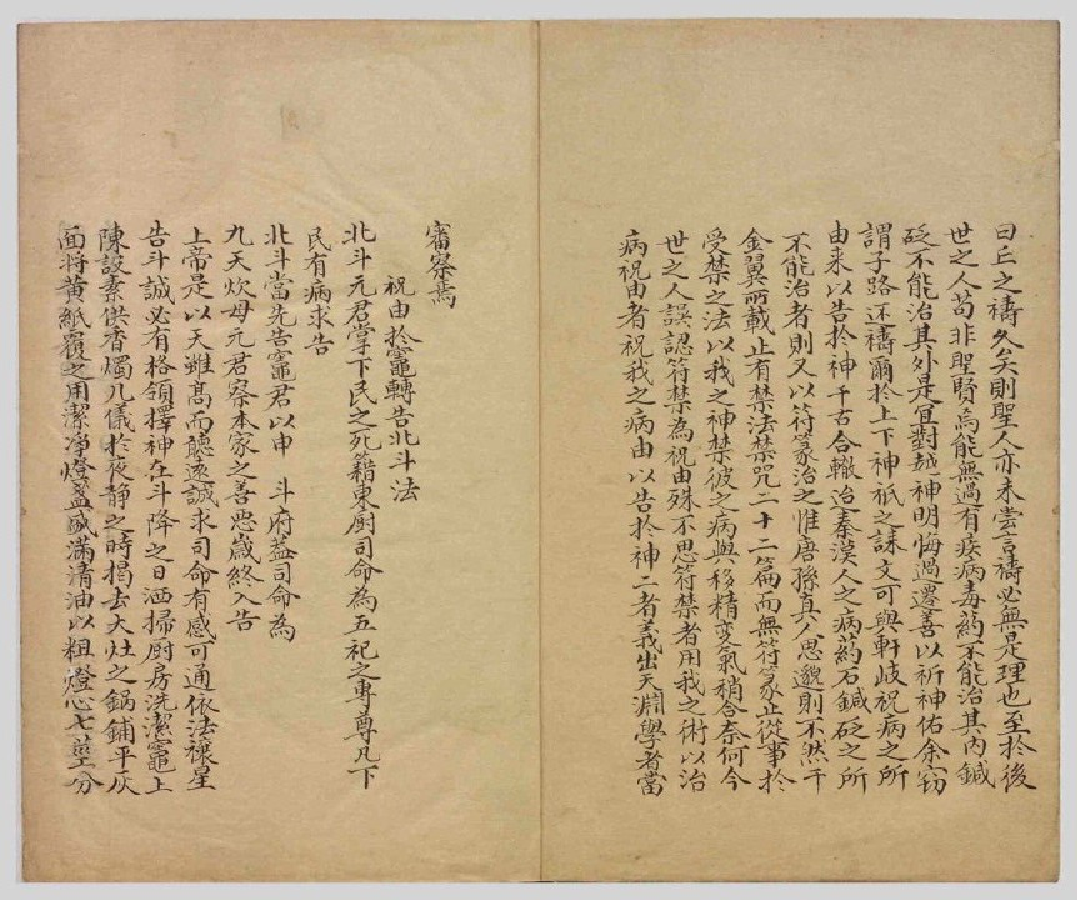 曰丘之禱久矣則聖人亦未嘗言禱必無是理也至於後
世之人苟非聖賢烏能無過有疾病毒藥不能治其內鍼
砭不能治其外是宜對越神明悔過遷善以祈神佑余竊
謂子路还禱爾於上下神祇之誄文可與軒岐祝病之所
由来以告於神千古合轍迨秦漢人之病药石鍼砭之所
不能治者則又以符篆治之惟唐孫真人思邈則不然千
金翼所載止有禁法禁咒二十二篇而無符篆止從事於
受禁之法以我之神禁彼之病與移精變氣稍合奈何今
世之人誤認符禁為祝由殊不思符禁者用我之術以治
病祝由者祝我之病由以告於神二者義出天淵學者當
審察焉
祝由於竈轉告北斗法
北斗元君掌下民之死籍東厨司命為五祀之專尊凡下
民有病求告
北斗當先告竈君以申 斗府蓋司命為
九天炊母元君察本家之善惡歲終入告
上帝是以天雖高而聽逺誠求司命有感可通依法禳星
告斗誠必有格領擇神在斗降之日洒掃厨房洗潔竈上
陳設素供香燭几儀於夜静之時揭去大灶之鍋鋪平灰
面将黄紙覆之用潔净燈盞盛滿清油以粗燈心七莖分